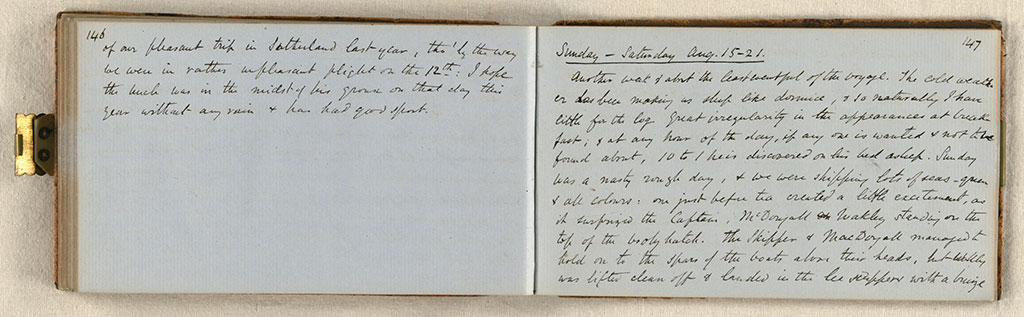 146
of our pleasant trip in Sutherland last year, tho' by the way
we were in rather unpleasant plight on the 12th: I hope
the uncle was in the midst of his grouse on that day this
year without any rain & has had good sport.
147
Sunday – Saturday Aug. 15–21.
Another week & abt the least eventful of the voyage. The cold weath-
er has been making us sleep like dormice, & so naturally I have
little for the log. Great irregularity in the appearances at break-
fast, & at any hour of the day, if any one is wanted & not to be
found about, 10 to 1 he is discovered on his bed asleep. Sunday
was a nasty rough day, & we were shipping lots of seas – green
& all colours: one just before tea created a little excitement, as
it surprised the Captain, McDougall Wakley standing on the
top of the boobyhatch. The Skipper & MacDougall managed to
hold on to the spars of the boats above their heads, but Wakley
was lifted clean off & landed in the lee scuppers with a bruise